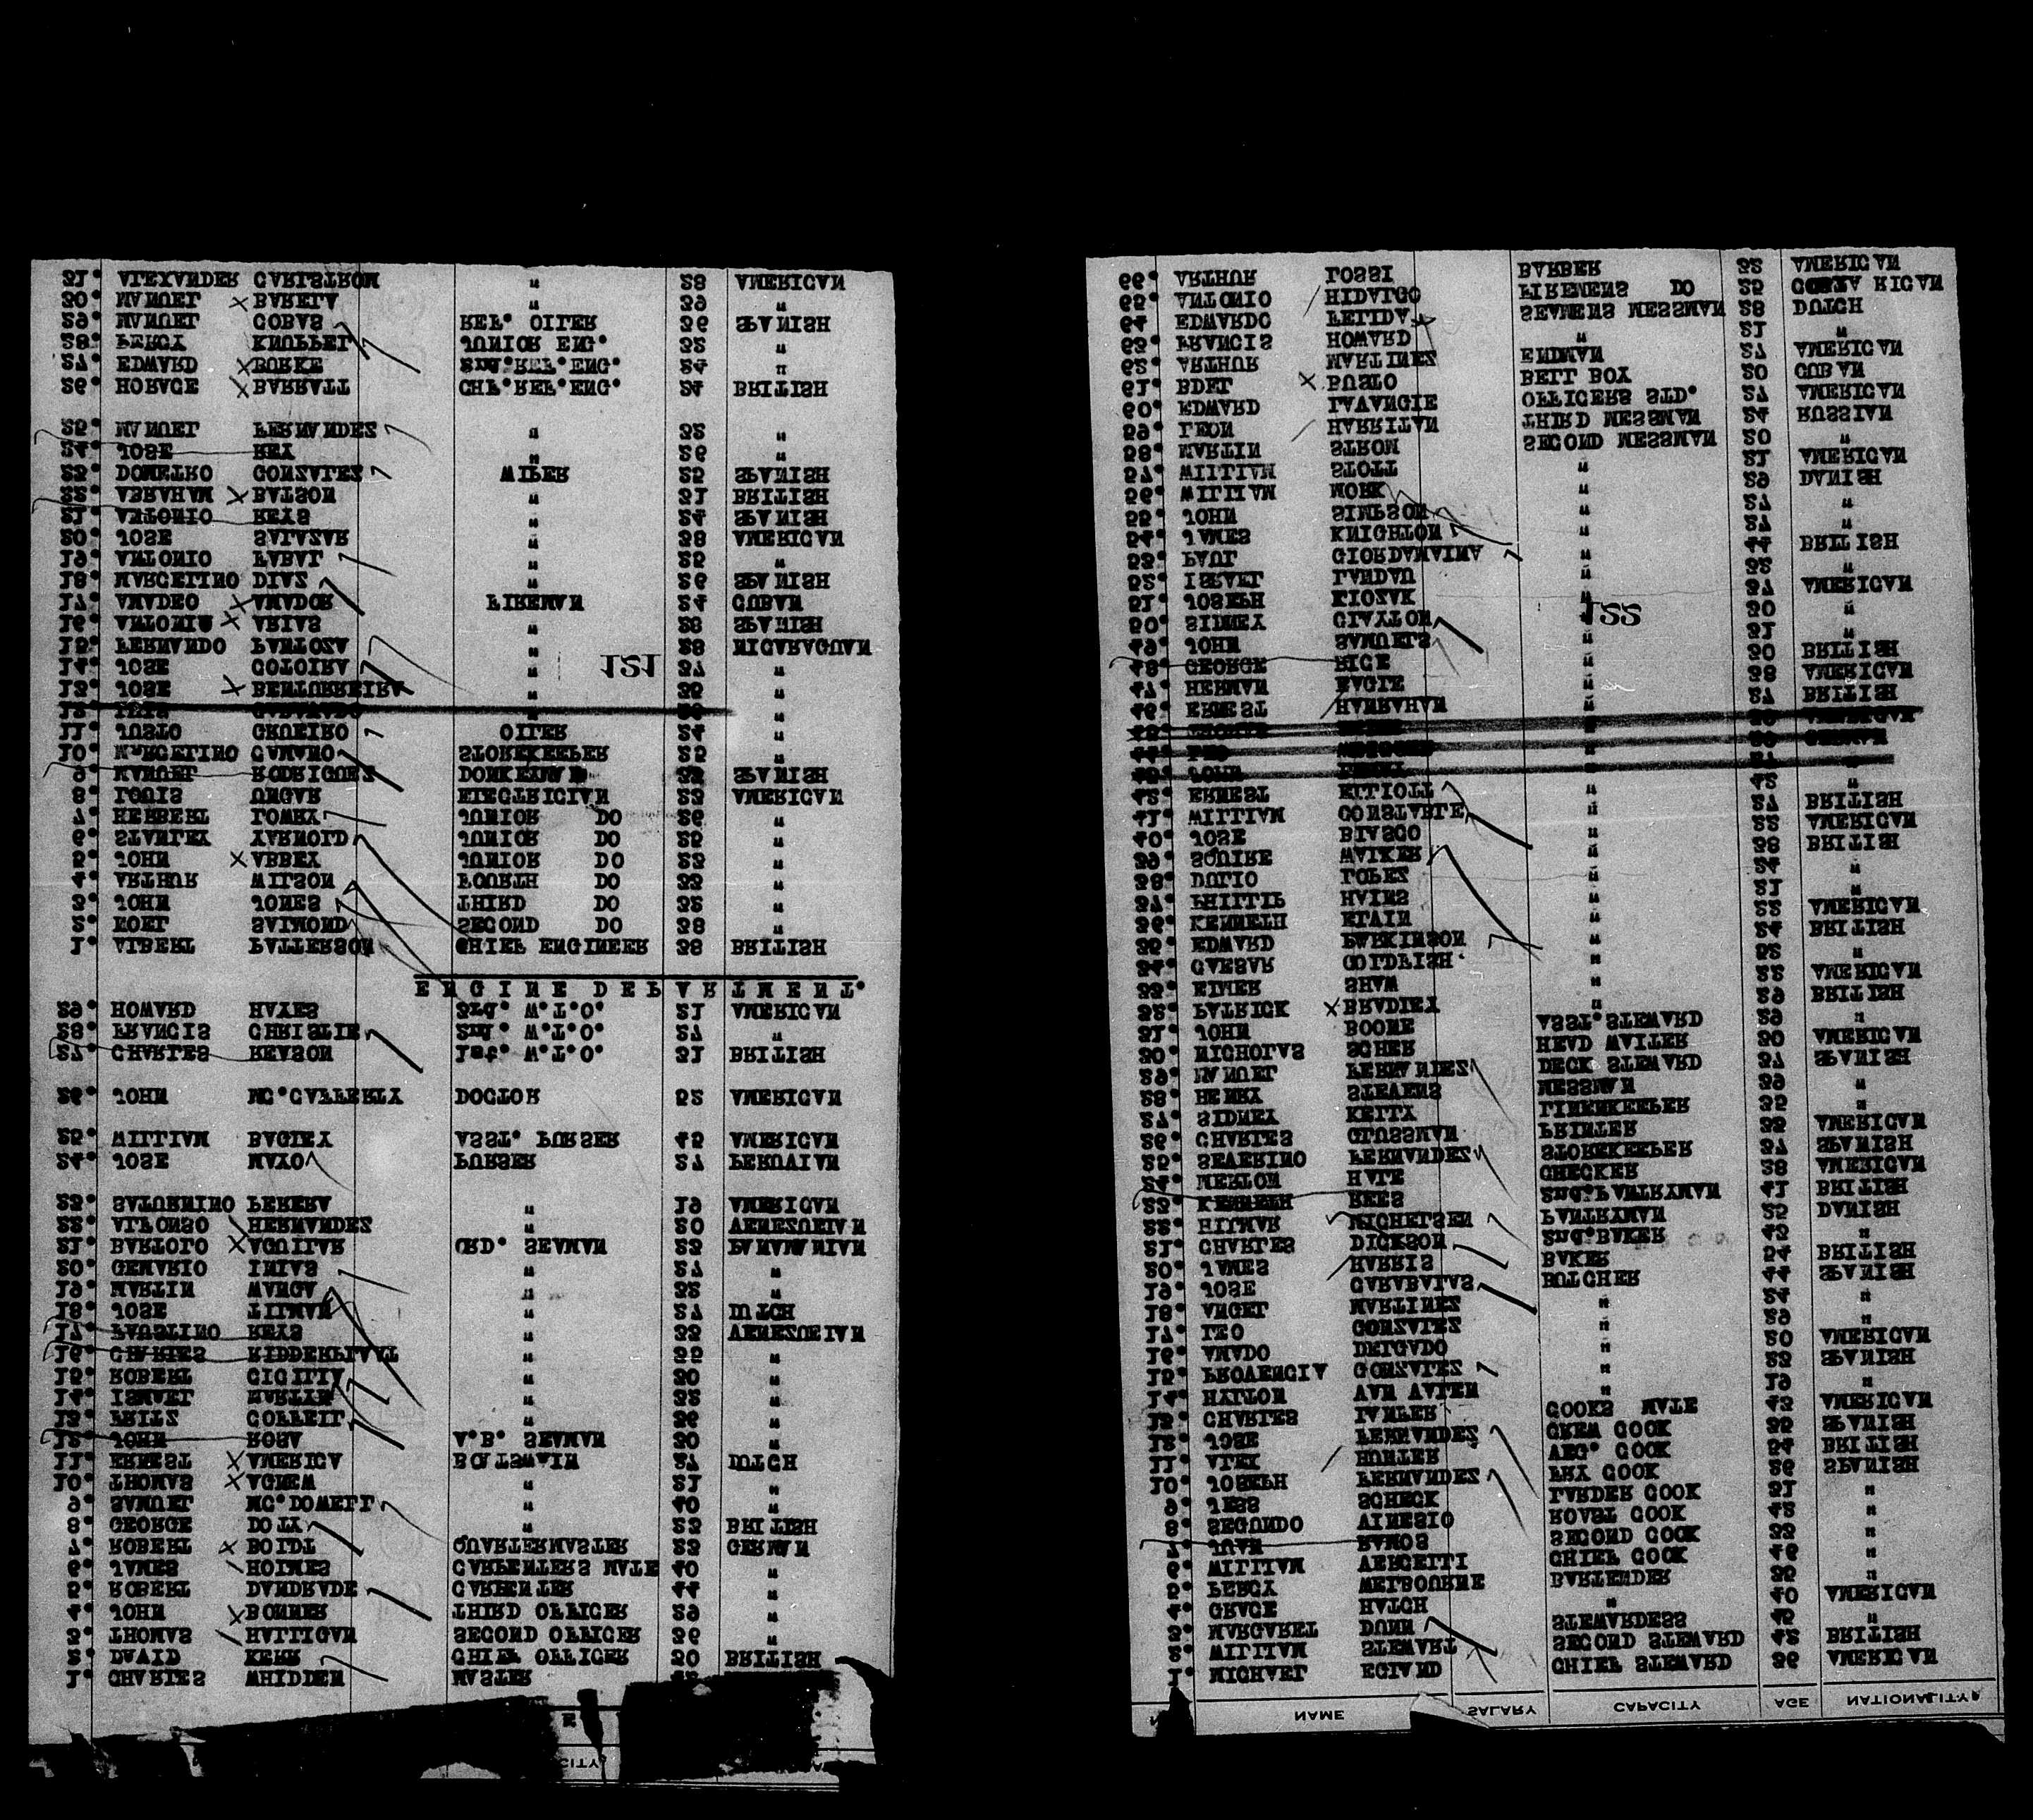 1. CHARLES WHIDDEN MASTER
2. DAVID KERR CHIEF OFFICER 30 BRITISH
3. THOMAS HALLIGAN SECOND OFFICER 36 "
4. JOHN BONNER THIRD OFFICER 29 "
5. ROBERT DANDRADE CARPENTER 44 "
6. JAMES HOLMES CARPENTERS MATE 40 "
7. ROBERT BOIDT QUARTERMASTER 23 GERMAN
8. GEORGE DOTY " 23 BRITISH
9. SAMUEL MC.DOWELL " 40 "
10. THOMAS AGNEW " 21 "
11. ERNEST AMERICA BOATSWAIN 37 DUTCH
12. JOHN ROSA A.B. SEAMAN 30 "
13. FRITS COFFEIT " 26 "
14. ISMAEL MARTIN " 32 "
15. ROBERT CICILIA " 30 "
16. CHARLES RIDDERTTAAT " 35 "
17. FAUSTINO REYS " 33 VENEZUELAN
18. JOSE LITMAN " 27 DUTCH
19. MARTIN WANGA " 32 "
20. GENARIO INIAS " 27 "
21. BARTOLO AGUILAR ORD. SEAMAN 23 PANAMANIAN
22. ALFONSO HERNANDES " 20 VENEZUELAN
23. SATURNINO PERERA " 19 AMERICAN
24. JOSE MAYO PURSER 27 PERUVIAN
25. WILLIAM BAGLEY ASST. PURSER 45 AMERICAN
26. JOHN MC.CAFFERTY DOCTOR 52 AMERICAN
27. CHARLES REASON 1st. W.T.O. 31 BRITISH
28. FRANCIS CHRISTIE 2nd. W.T.O. 27 "
29. HOWARD HAYES 3rd. W.T.O. 21 AMERICAN
ENGINE DEPARTMENT.
1. ALBERT PATTERSON CHIEF ENGINEER 38 BRITISH
2. ROBT SALMOND SECOND DO 38 "
3. JOHN JONES THIRD DO 32 "
4. ARTHUR WILSON FOURTH DO 33 "
5. JOHN ABBEY JUNIOR DO 23 "
6. STANLEY YARNOLD JUNIOR DO 25 "
7. HERBERT TOMEY JUNIOR DO 26 "
8. LOUIS UNGAR ELECTRICIAN 23 AMERICAN
9. MANUEL RODRIGUES DONKEYMAN 32 SPANISH
10. MARCELINO CAMANO STOREKEEPER 25 "
11. JUSTO CRUEIRO OILER 24 "
13. JOSE BENTURREIRA " 35 "
14. JOSE COTOIRA " 37 "
15. FERNANDO PANTOZA " 28 NICARAGUAN
16. ANTONIO ARIAS " 28 SPANISH
17. AMADEO AMADOR FIREMAN 24 CUBAN
18. MARCELINO DIAZ " 26 SPANISH
19. ANTONIO FABAL " 25 "
20. JOSE SALAZAR " 38 AMERICAN
21. ANTONIO REYS " 24 SPANISH
22. ABRAHAM BATSON " 31 BRITISH
23. DOMETRO GONZALES WIPER 25 SPANISH
24. JOSE REY " 26 "
25. MANUEL FERNANDES " 32 "
26. HORACE BARRATT CHF.REF.ENG. 24 BRITISH
27. EDWARD BURKE 2nd.REF.ENG. 24 "
28. PERCY KNUPPEL JUNIOR ENG. 32 "
29. MANUEL COBAS REF. OILER 36 SPANISH
30. MANUEL BARELA " 39 "
31. ALEXANDER CARLSTROM " 28 AMERICAN
121
NAME SALARY CAPACITY AGE NATIONALITY
1. MICHAEL EGLAND CHIEF STEWARD 36 AMERICAN
2. WILLIAM STEWART SECOND STEWARD 42 BRITISH
3. MARGARET DUNN STEWARDESS 45 "
4. GRACE HATCH " 40 AMERICAN
5. PERCY MELBOURNE BARTENDER 35 "
6. WILLIAM VERCELLI CHIEF COOK 46 "
7. JUAN RAMOS SECOND COOK 33 "
8. SEGUNDO VINESIO ROAST COOK 42 "
9. JESS SCHECK LARDER COOK 31 "
10. JOSEPH FERNANDES FRY COOK 26 SPANISH
11. ALEX HUNTER VEG. COOK 24 BRITISH
12. JOSE FERNANDES CREW COOK 35 SPANISH
13. CHARLES LAMPER COOKS MATE 43 AMERICAN
14. HAITON VAN AUTEN " 19 "
15. PROVENCIA GONZALES " 23 SPANISH
16. AMADO DELGADO " 20 AMERICAN
17. LEO GONZALES " 29 "
18. ANGEL MARTINES " 24 "
19. JOSE CARABALLAS BUTCHER 44 SPANISH
20. JAMES HARRIS BAKER 54 BRITISH
21. CHARLES DICKSON 2nd.BAKER 43 "
22. HILMAR MICHELSEN PANTRYMAN 32 DANISH
23. KENNETH REES 2nd.PANTRYMAN 41 BRITISH
24. MERTON HALE CHECKER 38 AMERICAN
25. SEVERINO FERNANDES STOREKEEPER 37 SPANISH
26. CHARLES GLUSSMAN PRINTER 35 AMERICAN
27. SIDNEY KELTY LINENKEEPER 35 "
28. HENRY STEVENS MESSMAN 39 "
29. MANUEL FERNANDES DECK STEWARD 37 SPANISH
30. NICHOLAS SCHER HEAD WAITER 30 AMERICAN
31. JOHN BOONE ASST.STEWARD 29 "
32. PATRICK BRADLEY " 29 BRITISH
33. ELMER SHAW " 22 AMERICAN
34. CAESAR GOLDFISH " 52 "
35. EDWARD PARKINSON " 24 BRITISH
36. KENNETH BLAIN " 22 AMERICAN
37. PHILLIP HAINS " 21 "
38. DUTIO LOPEZ " 24 "
39. SQUIRE WALKER " 38 BRITISH
40. JOSE BLASCO " 22 AMERICAN
41. WILLIAM CONSTABLE " 27 BRITISH
42. ERNEST ELLIOTT " 42 "
46. ERNEST HANRAHAN " 27 BRITISH
47. HERMAN EAGLE " 38 AMERICAN
48. GEORGE RICE " 30 BRITISH
49. JOHN SAMUELS " 31 "
50. SIDNEY CLAYTON " 30 "
51. JOSEPH KIOZAK " 37 AMERICAN
52. ISRAEL LANDAU " 32 "
53. PAUL GIORDAMAINA " 44 BRITISH
54. JAMES KNIGHTON " 27 "
55. JOHN SIMPSON " 27 "
56. WILLIAM WORK " 29 DANISH
57. WILLIAM STOLL " 21 AMERICAN
58. MARTIN STROM SECOND MESSMAN 20 "
59. LEON HARRITAN THIRD MESSMAN 24 RUSSIAN
60. EDWARD LAVANGIE OFFICERS STD. 27 AMERICAN
61. BDEL PUSTO BELL BOY 20 CUBAN
62. ARTHUR MARTINEZ ENDMAN 27 AMERICAN
63. FRANCIS HOWARD " 21 "
64. EDWARDO FELIDA SEAMENS MESSMAN 28 DUTCH
65. ANTONIO HIDALGO FIREMENS DO 25 COSTA RICAN
66. ARTHUR TOSSI BARBER 32 AMERICAN
122